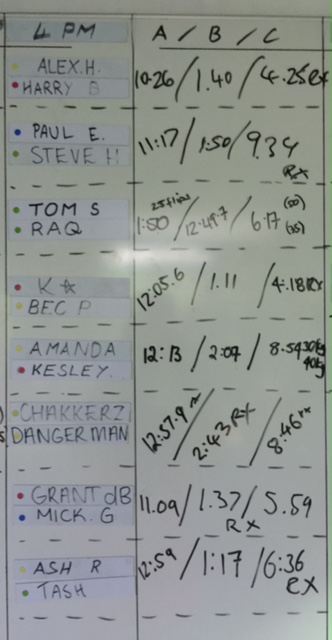 4 PM A / B / C
ALEX.H.
HARRY B
10.26 / 1.40 / 4.25 RX
PAUL E.
STEVE H
11:17 / 1:50 / 9.34
RX
TOM S
RAQ
1:50 / 12:49.7 / 6:17
K ☆
BEC P
12:05.6 / 1.11 / 4.18 RX
AMANDA
KESLEY.
12:13 / 2:07 / 8.54 30kg
40kg
CHAKKERZ
DANGERMAN
12:57.9 rx / 2:43 RX / 8:46 rx
GRANT dB
MICK. G
11.09 / 1.37 / 5.59
RX
ASH R
TASH
12:59 / 1:17 / 6:36
RX